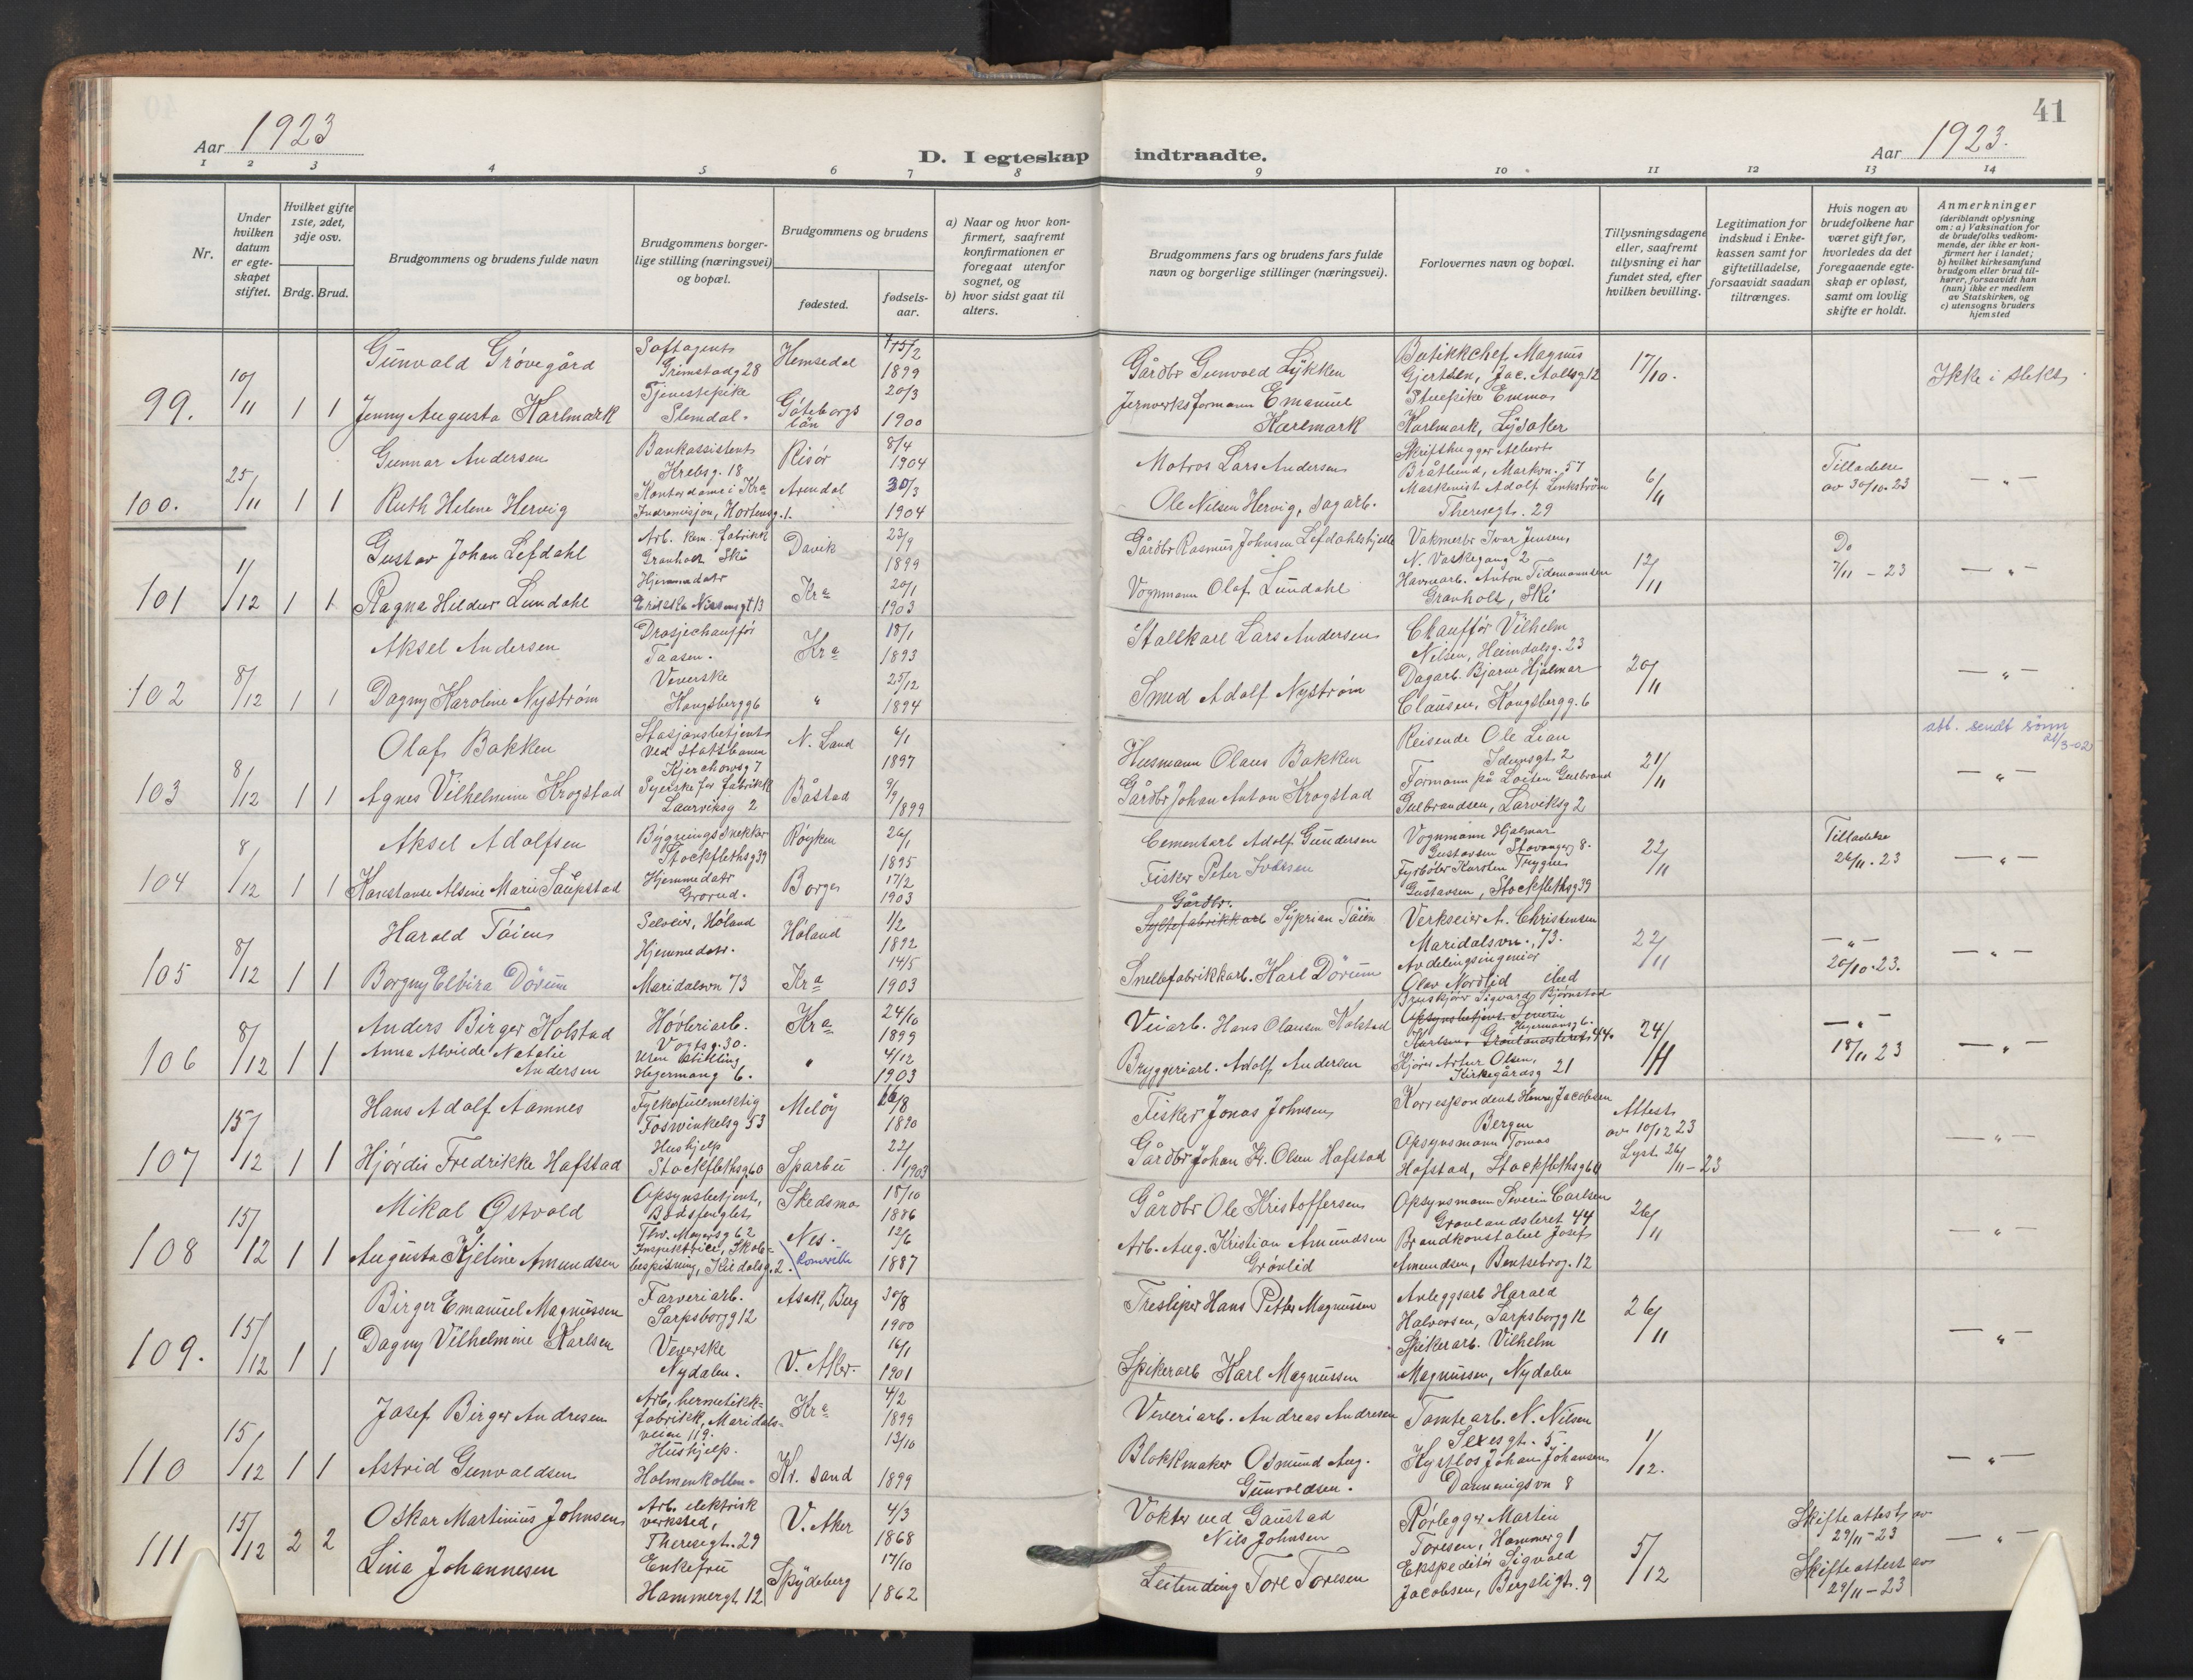 Aar 1923
D. I egteskap indtraadte.
41
Aar 1923.
1 2 3 4 5 6 7 8 9 10 11 12 13 14
Nr.
Under hvilken datum er egteskapet stiftet.
Hvilket gifte 1ste, 2det, 3dje osv.
Brdg. Brud.
Brudgommens og brudens fulde navn
Brudgommens borgerlige stilling (næringsvei) og bopæl.
Brudgommens og brudens
fødested.
fødselsaar.
a) Naar og hvor konfirmert, saafremt konfirmationen er foregaat utenfor sognet, og
b) hvor sidst gaat til alters.
Brudgommens fars og brudens fars fulde navn og borgerlige stillinger (næringsvei).
Forlovernes navn og bopæl.
Tillysningsdagene eller, saafremt tillysning ei har fundet sted, efter hvilken bevilling.
Legitimation for indskud i Enkekassen samt for giftetilladelse, forsaavidt saadan tiltrænges.
Hvis nogen av brudefolkene har været gift før, hvorledes da det foregaaende egteskap er opløst, samt om lovlig skifte er holdt.
Anmerkninger (deriblandt oplysning om: a) Vaksination for de brudefolks vedkommende, der ikke er konfirmert her i landet; b) hvilket kirkesamfund brudgom eller brud tilhører, forsaavidt han (hun) ikke er medlem av Statskirken, og c) utensogns bruders hjemsted
99. 10/11 1 1
Gunvald Grøvegård
Grimstadg 28 Hemsedal 15/2 1899
Gårdbr Gunvald Lykken
Butikkchef Magnus Gjertsen, Jac. Aallsg 12
17/10.
Ikke i slekt
Jenny Augusta Karlmark
Tjenestepike Slemdal. Göteborgs län 20/3 1900
Jernverksformann Emanuel Karlmark
Stuepike Emma Karlmark, Lysaker
100. 25/11 1 1
Gunnar Andersen
Bankassistent Krebsg. 18 Risør 8/4 1904
Matros Lars Andersen
Skrifthugger Albert Bråtlund, Markvn. 57
6/11
Tilladelse av 30/10-23
— " —
Ruth Helene Hervig
Kontordame i Kra Indremisjon, Hortensg. 1. Arendal 30/3 1904
Ole Nilsen Hervig, sagarb.
Maskinist Adolf Lenkström Theresegt. 29
101 1/12 1 1
Gustav Johan Lefdahl
Arb. kem. fabrikk Granholt Ski Davik 23/9 1899
Gårdbr Rasmus Johnsen Lefdahlshjelle
Vakmester Ivar Jensen, N. Vaskegang 2
12/11
Do 7/11 - 23
— " —
Ragna Hildur Lundahl
Hjemmedatr Kra 20/1 1903
Vognmann Olaf Lundahl
Havnearb. Anton Tidemannsen Granholt, Ski
102 8/12 1 1
Aksel Andersen
Drosjechauffør Taasen. Kra 18/1 1893
Stallkarl Lars Andersen
Chauffør Vilhelm Nilsen, Heimdalsg. 23
20/11
— " —
Dagny Karoline Nystrøm
Veverske Kongsbergg 6 " 25/12 1894
Smed Adolf Nystrøm
Dagarb. Bjarne Hjalmar Clausen, Kongsbergg. 6
103 8/12 1 1
Olaf Bakken
Stasjonsbetjent ved statsbanen Kjerchowsg 7 N. Land 6/1 1897
Husmann Olaus Bakken
Reisende Ole Lian Idunsgt. 2
21/11
att. sendt sønn
— " —
Agnes Vilhelmine Krogstad
Syerske for fabrikk Laurviksg 2 Båstad 9/9 1899
Gårdbr Johan Anton Krogstad
Formann på Løiten Gulbrand Gulbrandsen, Larviksg 2
104 8/12 1 1
Aksel Adolfsen
Bygningssnekker Stockflethsg 39 Røyken 26/1 1895
Cementarb Adolf Gundersen
Vognmann Hjalmar Gustavsen Stavangerg 8.
22/11
Tilladelse 26/11. 23
— " —
Konstanse Alsine Marie Saupstad
Hjemmedatr Grorud. Borge 17/2 1903
Fisker Peter Iversen
Fyrbøter Karsten Trygve Gustavsen, Stockflethsg 39
105 8/12 1 1
Harald Tøien
Selveier, Høland Høland 1/2 1892
Gårdbr. Syltefabrikkarb Syprian Tøien
Verkseier A. Christensen Maridalsvn., 73.
22/11
— " — 20/10. 23.
— " —
Borgny Elvira Dørum
Hjemmedatr. Maridalsvn 73 Kra 14/5 1903
Snellefabrikkarb. Karl Dørum
Avdelingsingeniør Olav Nordlid
106 8/12 1 1
Anders Birger Kolstad
Høvleriarb. Vogtsg. 30. Kra 24/10 1899
Veiarb. Hans Olausen Kolstad
Bruskjører Sigvard Bjørnstad Hegermansg 6.
Opsynsbetjent. Severin Karlsen, Grønlandsleret 44.
24/11
— " — 18/11 23
— " —
Anna Alvilde Natalie Andersen
Uten stilling Hegermang 6. " 4/12 1903
Bryggeriarb. Adolf Andersen
Kjører Artur Olsen, Kirkegårdsg 21
107 15/12 1 1
Hans Adolf Aamnes
Fylkesfullmektig Fosswinkelsg 53 Meløy 16/8 1890
Fisker Jonas Johnsen
Korrespondent Henry Jacobsen Bergen
Attest av 10/12 23
Lyst 26/11 - 23
— " —
Hjørdis Fredrikke Hafstad
Hushjelp Stockflethsg 60 Sparbu 22/11 1903
Gårdbr Johan Kr. Olsen Hafstad
Opsynsmann Tomas Hafstad, Stockflethsg 60
108 15/12 1 1
Mikal Østvold
Opsynsbetjent, Bodsfenglet Thv. Meyersg 62 Skedsmo 18/10 1886
Gårdbr Ole Kristoffersen
Opsynsmann Severin Carlsen Grønlandsleret 44
26/11
"
Augusta Kjeline Amundsen
Inspektrice, Skolebespisning, 2. Nes. Romerike 12/6 1887
Arb. Aug. Kristian Amundsen Grønlid
Brandkonstabel Josef Amundsen, Bentsebrog. 12
109. 15/12 1 1
Birger Emanuel Magnussen
Farveriarb. Sarpsborgg 12 Asak, Berg 30/8 1900
Tresliper Hans Petter Magnussen
Anleggsarb Harald Halvorsen, Sarpsborgg 12
26/11
— " —
Dagny Vilhelmine Karlsen
Veverske Nydalen. V. Aker. 16/1 1901
Spikerarb Karl Magnussen
Spikerarb. Vilhelm Magnussen, Nydalen
110 15/12 1 1
Josef Birger Andresen
Arb, hermetikkfabrikk, Maridalsveien 119. Kra 4/2 1899
Veveriarb. Andreas Andresen
Tomtearb. N. Nilsen Sexesgt. 5.
1/12.
— " —
Astrid Gunvaldsen
Hushjelp. Holmenkollen. Kr. sand 13/10 1899
Blokkmaker Osmund Aug. Gunvaldsen.
Kystlos Johan Johansen Dannevigsvn 8
111 15/12 2 2
Oskar Martinius Johnsen
Arb. elektrisk verksted, Theresegt. 29 V. Aker 4/3 1868
Vokter ved Gaustad Nils Johnsen
Rørlegger Martin Toresen, Hammerg 1
5/12
Skifteattest av 29/11-23
— " —
Lina Johannesen
Enkefru Hammergt 12 Spydeberg 17/10 1862
Leilending Tore Toresen
Ekspeditør Sigvald Jacobsen, Bergsligt. 9
Skifteattest av 29/11-23